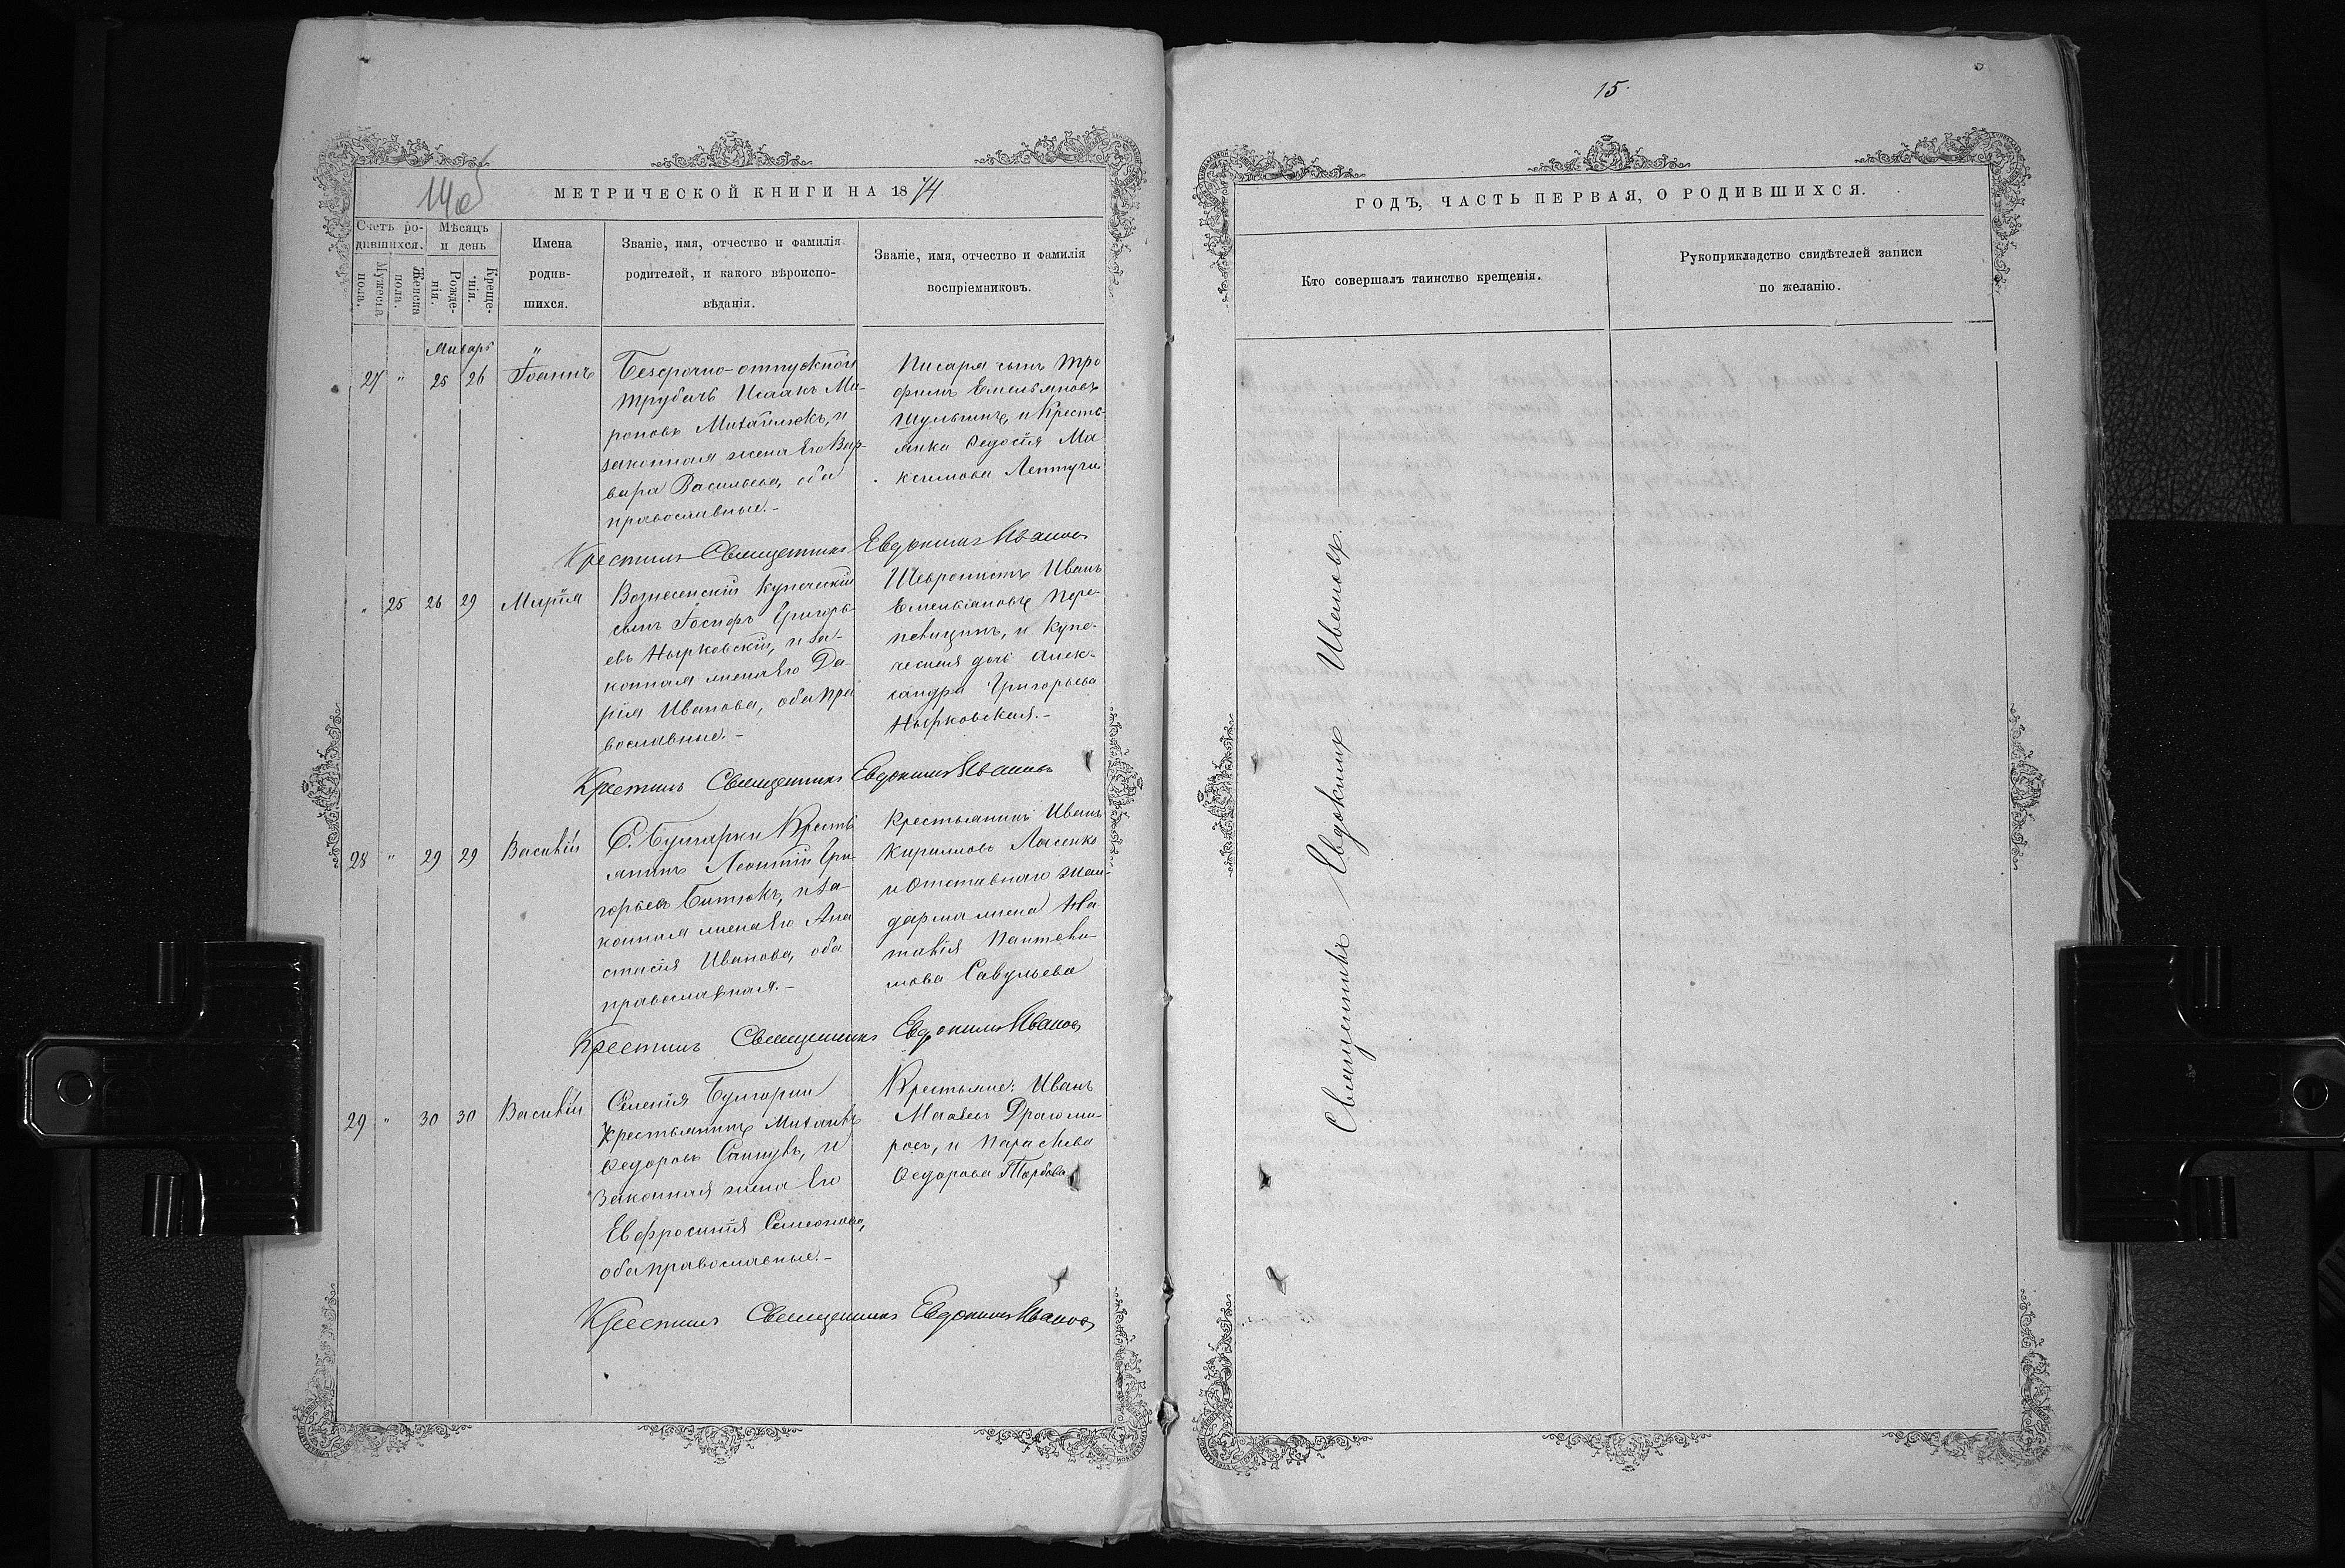 15.
14об
МЕТРИЧЕСКОЙ КНИГИ НА 1874
Счетъ ро-
дившихся.
Мѣсяцъ
и день
Мужеска
пола.
Женска
пола.
Рожде-
нія.
Креще-
нія.
Имена
родив-
шихся.
Званіе, имя, отчество и фамилія
родителей, и какого вѣроиспо-
вѣданія.
Званіе, имя, отчество и фамилія
воспріемниковъ.
Январь
27 " 25 26 Іоаннъ
Безсрочно-отпускной
трубачъ Исаакъ Ми-
роновъ Михайлюкъ, и
законная жена Его Вар-
вара Васильева, оба
православные.-
Писаря сынъ Тро
фимъ Емельяновъ
Шульгинъ, и Кресть-
янка Ѳедосія Ма
ксимова
Крестилъ Священникъ Евдокимъ Ивановъ
" 25 26 29 Марія
Вознесенскій Купеческій
сынъ Іосифъ Григорь-
евъ Нырковскій, и за-
конная жена Его Да-
рія Иванова, оба пра
вославные.-
Иванъ
Емельяновъ Пере-
певицынъ, и Купе-
ческая дочь Алек-
сандра Григорьева
Нырковская.-
Крестилъ Священникъ Евдокимъ Ивановъ
28 " 29 29 Василій
С. Булгарки Кресть
янинъ Леонтій Гри-
горьевъ Битюкъ, и за-
конная жена Его Ана
стасія Иванова, оба
православная.-
Крестьянинъ Иванъ
Кириловъ Лысенко
и Отставнаго жан-
дарма жена На
талія Пантели
мова Савульева
Крестилъ Священникъ Евдокимъ Ивановъ
29 " 30 30 Василій
Селенія Булгарки
Крестьянинъ Михаилъ
Ѳедоровъ и
Законная жена Его
Евфросинія Семенова,
оба православные.-
Крестьяне: Иванъ
Драгоми
ровъ, и Параскева
Ѳедорова
Крестилъ Священникъ Евдокимъ Ивановъ
ГОДЪ, ЧАСТЬ ПЕРВАЯ, О РОДИВШИХСЯ.
Кто совершалъ таинство крещенія.
Рукоприкладство свидѣтелей записи
по желанію.
Священникъ Евдокимъ Ивановъ.